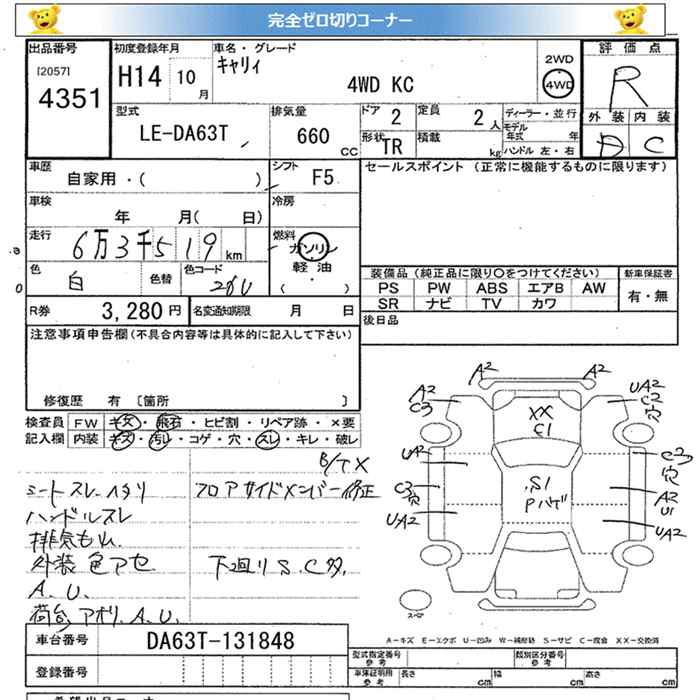 完全ゼロ切りコーナー
出品番号 初度登録年月 車名・グレード 評価点
[2057] 4351 H14 10月 キャリィ 4WD KC 2WD 4WD R
型式 排気量 ドア 2 定員 2人 ディーラー・並行 外装 内装
LE-DA63T 660 CC 形状 TR 積載 kg モデル年式 年 D C
ハンドル 左・右
車歴 自家用・( ) シフト F5 セールスポイント (正常に機能するものに限ります)
車検 年 月( 日) 冷房
走行 6万3千519km 燃料 ガソリン 軽油 ( )
色 白 色替 色コード 26U 装備品(純正品に限り○をつけてください) 新車保証書
PS PW ABS エアB AW 有・無
SR ナビ TV カワ
R券 3,280円 名変通知期限 月 日 後日品
注意事項申告欄(不具合内容等は具体的に記入して下さい)
修復歴 有 〔箇所 〕
検査員 FW キズ・飛石・ヒビ割・リペア跡・×要
記入欄 内装 キズ・汚レ・コゲ・穴・スレ・キレ・破レ
B/TX
シートスレ、ヘタリ フロアサイドメンバー修正
ハンドルスレ
排気もれ
外装色アセ 下廻りS.C多
A.U.
荷台、アオリ、A.U.
A2 A2
A2 C3 XX C1 UA2 C2 穴
UA2 S1 C2 穴
C3 穴 Pハゲ A2 U1
UA2 UA2
スペア
A-キズ E-エクボ U-凹み W-補修跡 S-サビ C-腐食 XX-交換済
車台番号 DA63T-131848
登録番号
型式指定番号 参考 類別区分番号 参考
車庫証明用 参考 長さ cm 幅 cm 高さ cm